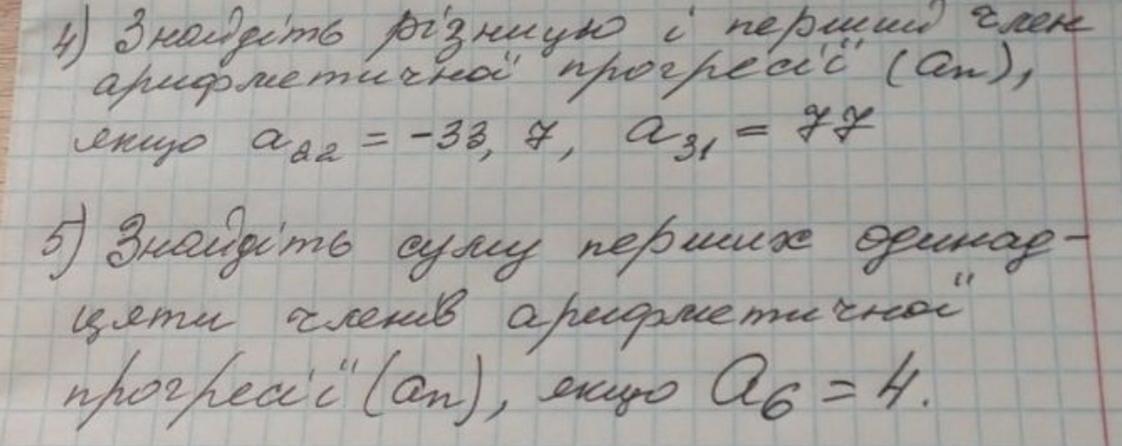 4) Знайдіть різницю і перший член
арифметичної прогресії (an),
якщо a22 = -33,7, a31 = 77
5) Знайдіть суму перших одинад-
цяти членів арифметичної
прогресії (an), якщо a6 = 4.